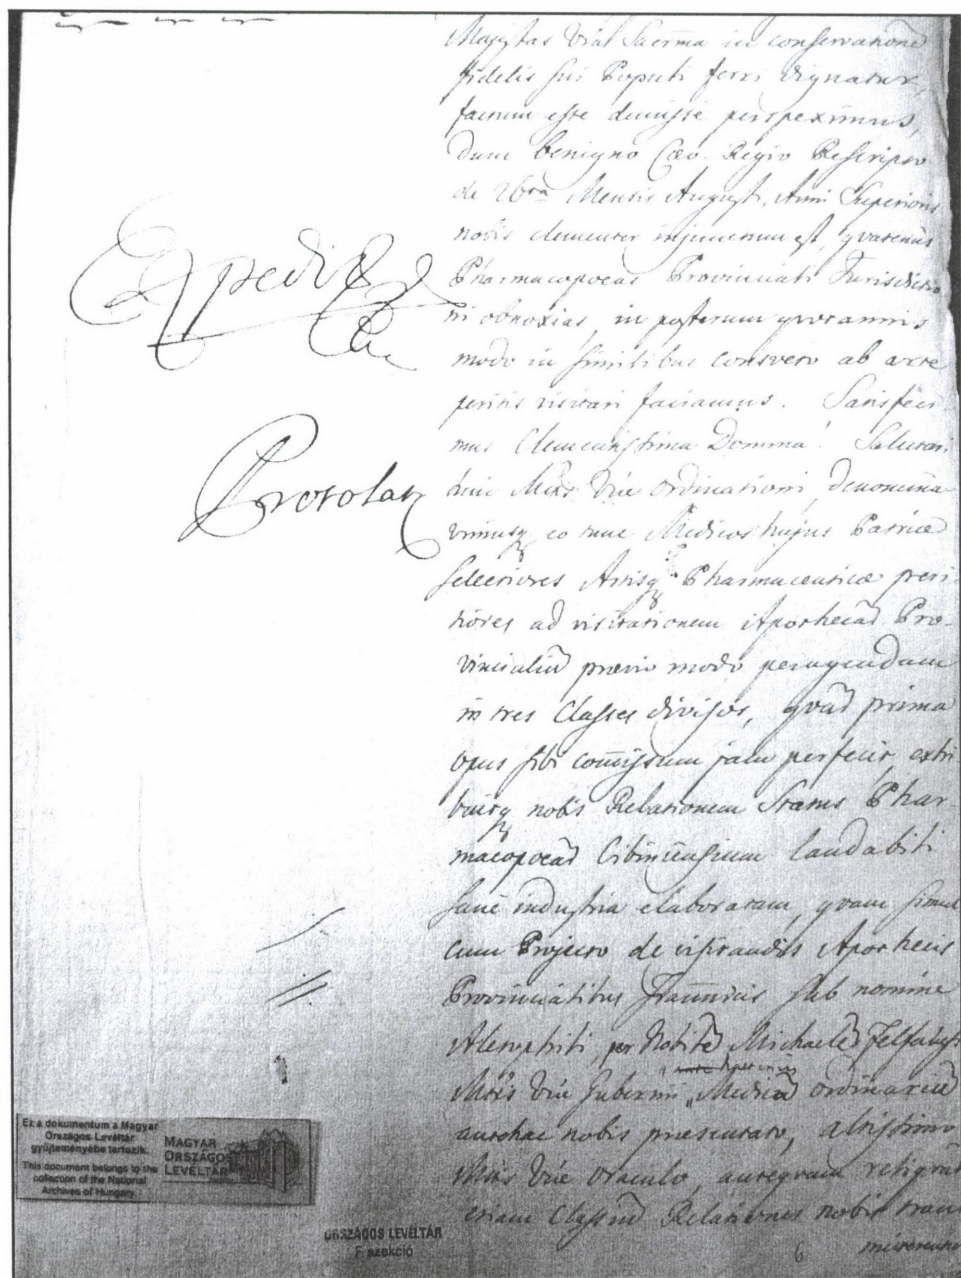 Majestas Vra Sacrma in conservatione
fidelis sui Populi ferri dignatur,
factum esse demisse perspeximus,
dum benigno Caeo Regio Rescripto
de 26ta Mensis Augusti, Anni Superioris
nobis clementer injunctum est, qvatenus
Pharmacopoeas Provinciali Jurisdictio
ni obnoxias, in posterum qvotannis
modo in similibus consveto ab arte
peritis visitari faciamus. Satisfeci
mus Clementissima Domina! Salutari
huic Mttis Vrae Ordinationi, denomina
vimusq eo tunc Medicos hujus Patriae
Selectiores Artisq Pharmaceuticae peri
tiores ad visitationem Apothecar Pro-
vincialiu praevio modo peragendam
in tres Classes divisos, qvar prima
opus sibi comissum jam perfecit, exhi
buitq nobis Relationem Status Phar
macopoear Cibiniensium laudabili
sane industria elaboratam, qvam simul
cum Projecto de visitandis Apothecis
Provincialibus Sub nomine
per Michaele Felfalusi
Mttis Vrae Gubernii Medicu ordinariu
antehac nobis praesentato, altissimo
Mttis Vrae Oraculo, anteqvam reliqvar
etiam Classiu Relationes nobis trans
6 mitterentur
Expedit
Protolat
Ez a dokumentum a Magyar
Országos Levéltár
gyűjteményébe tartozik.
This document belongs to the
collection of the National
Archives of Hungary.
MAGYAR
ORSZÁGOS
LEVÉLTÁR
ORSZÁGOS LEVÉLTÁR
F szekció